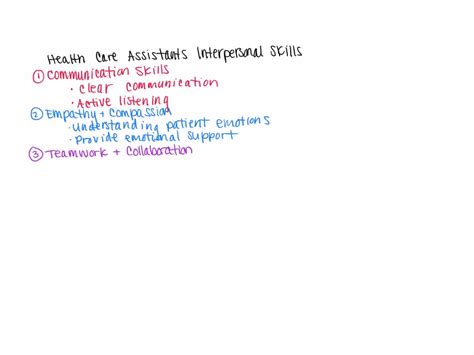 Health Care Assistants Interpersonal Skills
① Communication Skills
• Clear communication
• Active listening
② Empathy + Compassion
• Understanding patient emotions
• Provide emotional support
③ Teamwork + Collaboration